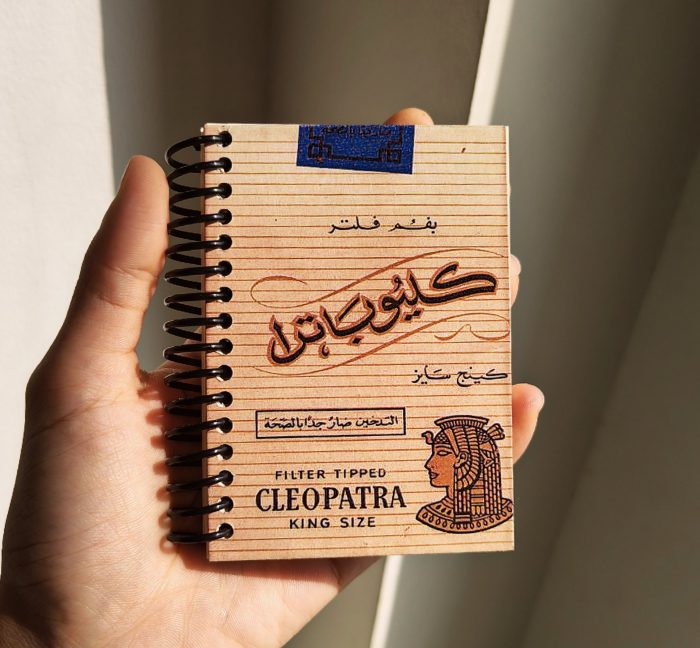 ضار جدًا بالصحة
بفُم فلتر
كليُوبَاترا
كينج سَايز
التدخين ضارٌ جدًّا بالصَحَة
FILTER TIPPED
CLEOPATRA
KING SIZE